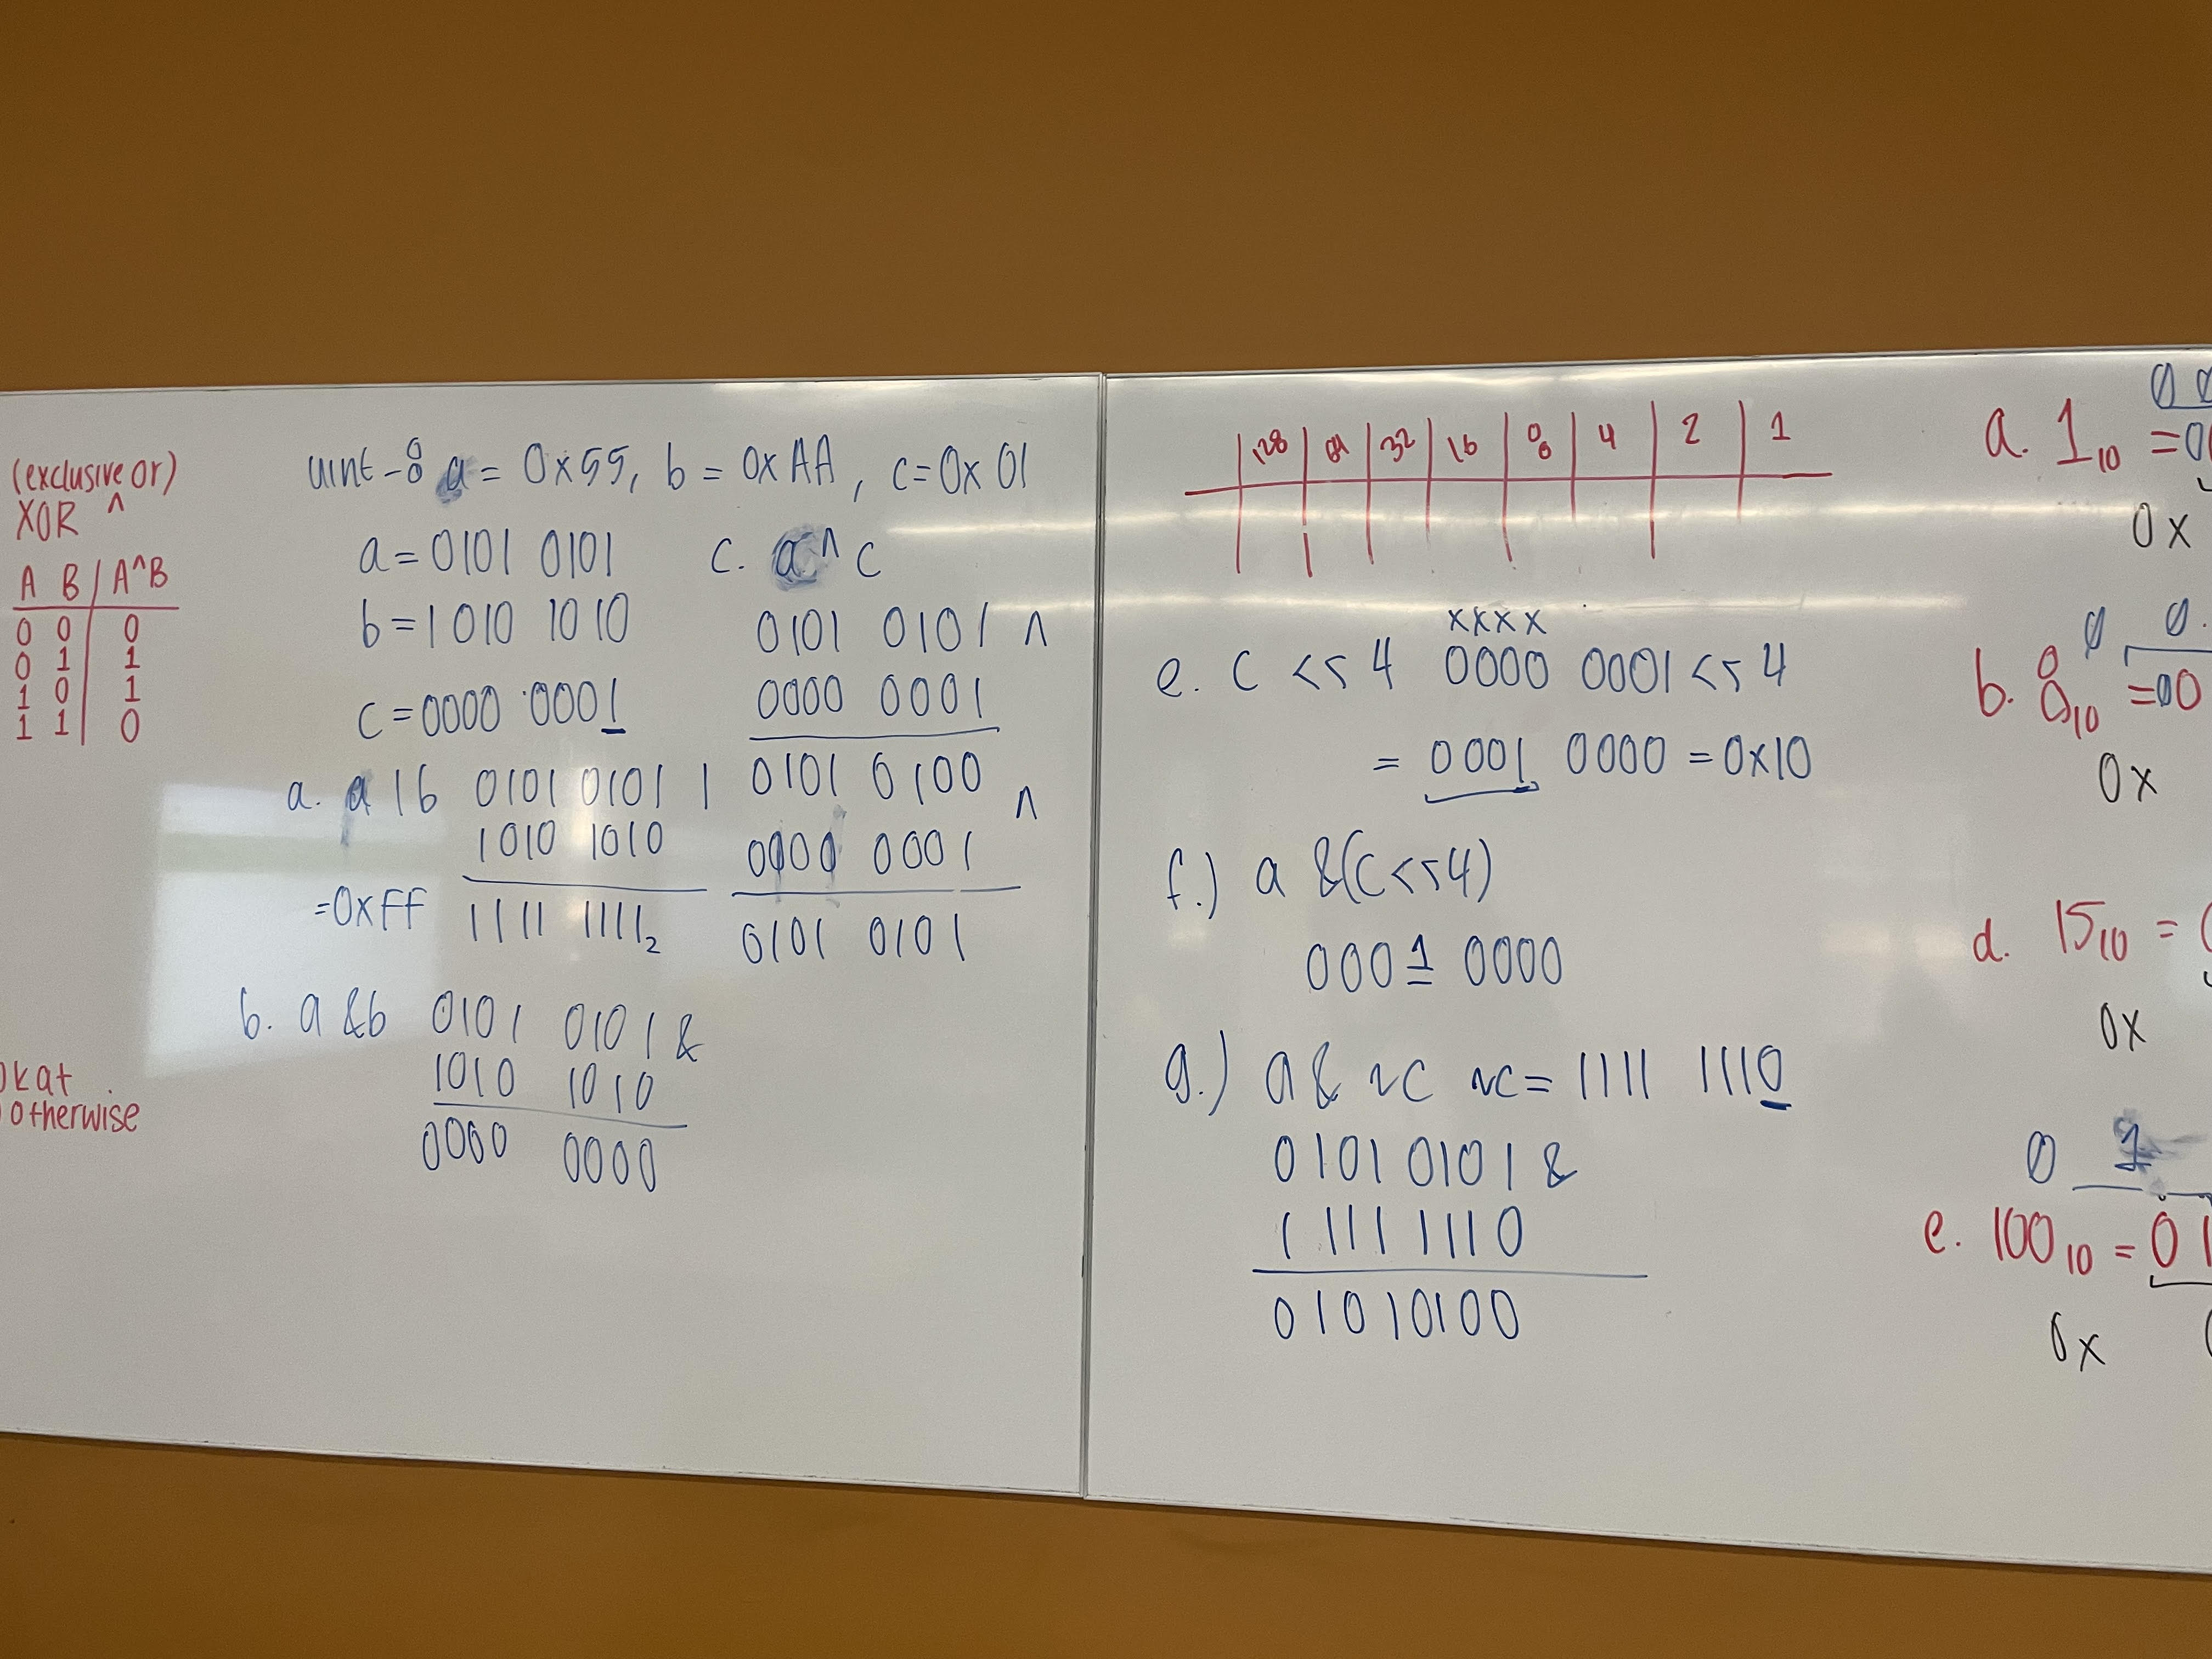 (exclusive or)
XOR ^
A B | A^B
0 0 0
0 1 1
1 0 1
1 1 0
okat
otherwise
uint-8 a = 0x55, b = 0xAA, c=0x01
a = 0101 0101
b = 1010 1010
c = 0000 0001
a. a | b 0101 0101 |
1010 1010
=0xFF 1111 1111₂
b. a & b 0101 0101 &
1010 1010
0000 0000
c. a ^ c
0101 0101 ^
0000 0001
0101 0100 ^
0000 0001
0101 0101
128 64 32 16 8 4 2 1
xxxx
e. c << 4 0000 0001 << 4
= 0001 0000 = 0x10
f.) a &(c<<4)
0001 0000
g.) a & ~c ~c = 1111 1110
01010101 &
1 111 1110
01010100
a. 1₁₀ =
0x
b. 8₁₀ =00
0x
d. 15₁₀ =
0x
0 1
e. 100₁₀ = 01
0x